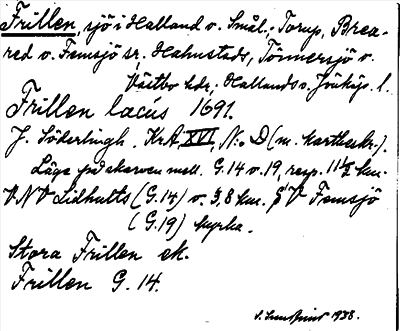 Frillen, sjö i Halland o. Smål.: Torup, Brea-
red o. Femsjö sr, Halmstads, Tönnersjö o.
Västbo hdr; Hallands o. Jönköp. l.
Frillen lacus 1691.
J. Söderlingh. KrA XVI, N:o D (m. Karthuskr.).
Läge på skarven mell. G. 14 o. 19, resp. 11½ km.
VNV Lidhults (G. 14) o. 3,8 km. V Femsjö
(G. 19) kyrka.
Stora Frillen ek.
Frillen G. 14.
1938.